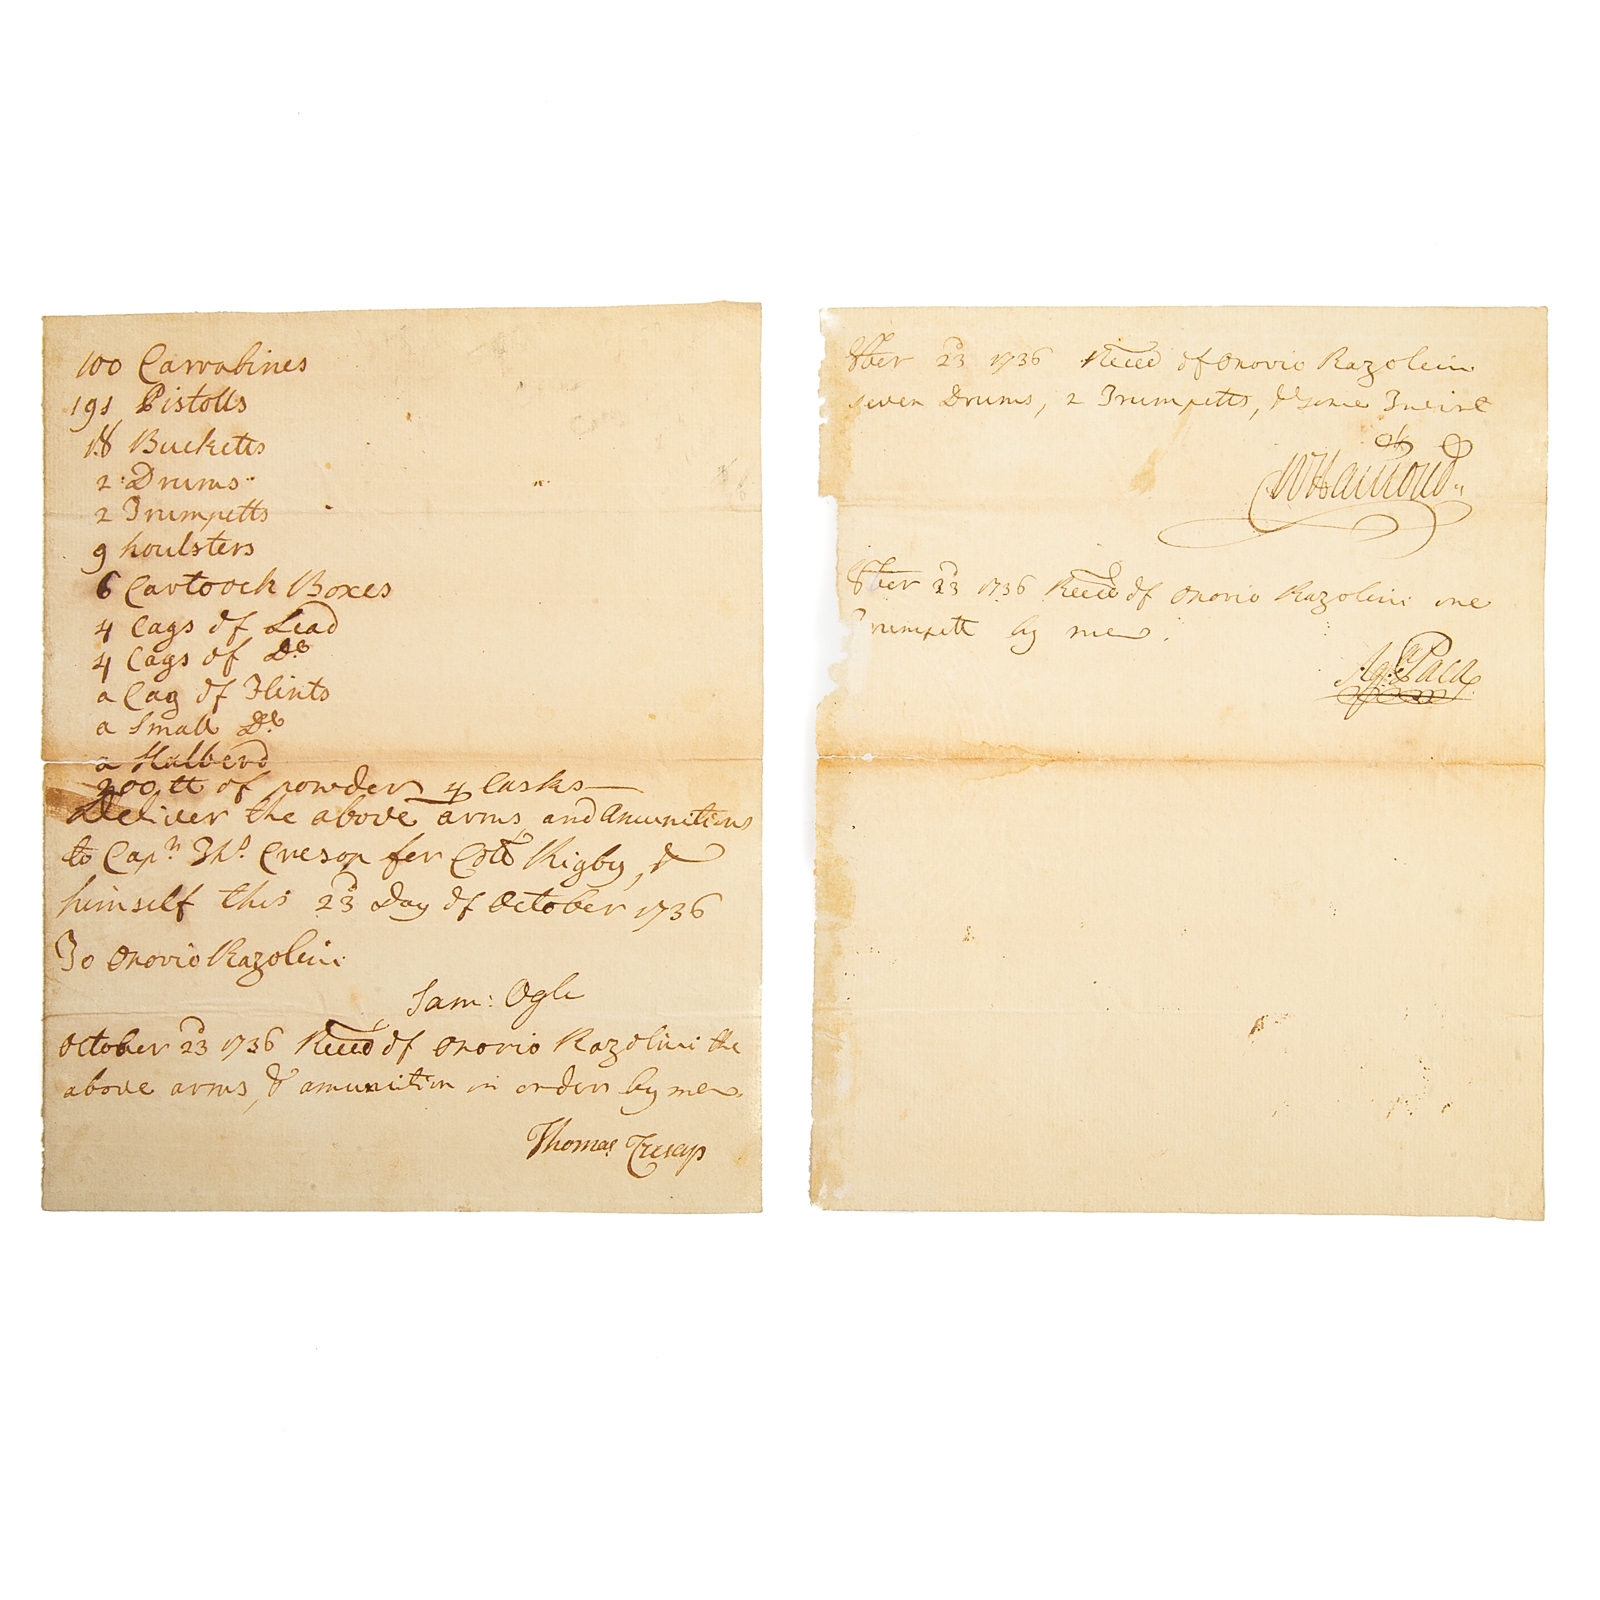 100 Carrabines
191 Pistolls
18 Bucketts
2 Drums
2 Trumpetts
9 houlsters
6 Cartooch Boxes
4 Cags of Lead
4 Cags of Do
a Cag of Flints
a Small Do
a Halberd
200 tt of powder 4 Casks
Deliver the above arms and
to Capn Thos. Cresop for Coll Rigby, &
himself this 23d Day of October 1736
To Onorio Razolini
Sam: Ogle
October 23d 1736 Recd of Onorio Razolini the
above arms, & amunition in order by me
Thomas Cresap
8ber 23d 1736 Recd of Onorio Razolini
seven Drums, 2 Trumpetts, & some
WHamond
8ber 23d 1736 Recd of Onorio Razolini one
Trumpett by me.
Paca